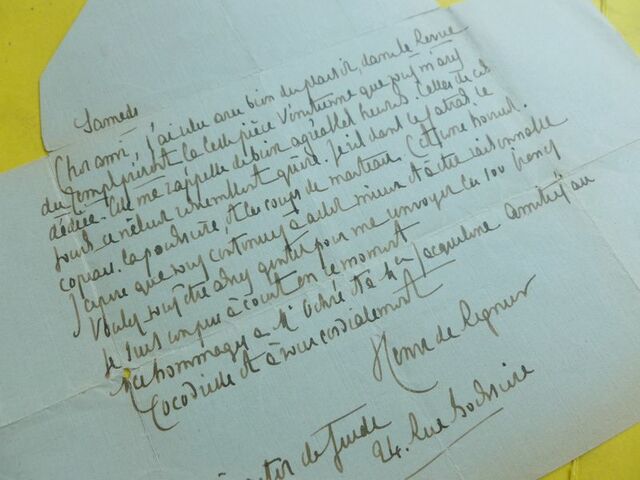 Samedi
Cher ami, j'ai lu avec bien du plaisir, dans la Revue
du temps présent la belle pièce Vénitienne que vous m'avez
dédiée. Elle me rappelle de bien agréables heures. Celles de ces
jours ci ne leur ressemblent guère. Je vis dans le fatras, le
copeau, la poussière, et les coups de marteau. C'est une horreur.
J'espère que vous continuez à aller mieux et à être raisonnable
Voulez vous être assez gentil pour me envoyer les 100 francs
Je suis un peu à court en ce moment
Mes hommages à Me et à Mlle Jacqueline amitiés au
Crocodile et à vous cordialement
Henri de Régnier
24. Rue Boissière